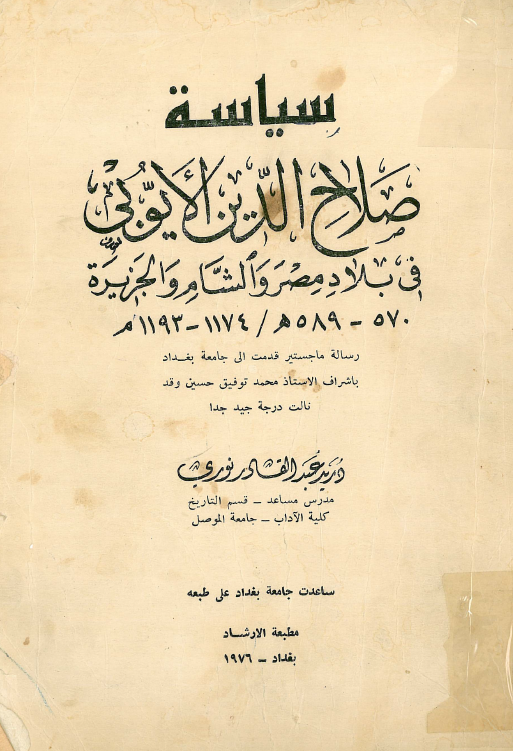 سياسة
صَلاحِ الدّين الأيّوبيّ
في بلادِ مِصرَ وَالشّامِ وَالجَزيرَة
٥٧٠ - ٥٨٩ هـ / ١١٧٤ - ١١٩٣ م
رسالة ماجستير قدمت الى جامعة بغداد
باشراف الاستاذ محمد توفيق حسين وقد
نالت درجة جيد جدا
دُريد عَبد القادر نوري
مدرس مساعد ــ قسم التاريخ
كلية الآداب ــ جامعة الموصل
ساعدت جامعة بغداد على طبعه
مطبعة الارشاد
بغداد ــ ١٩٧٦